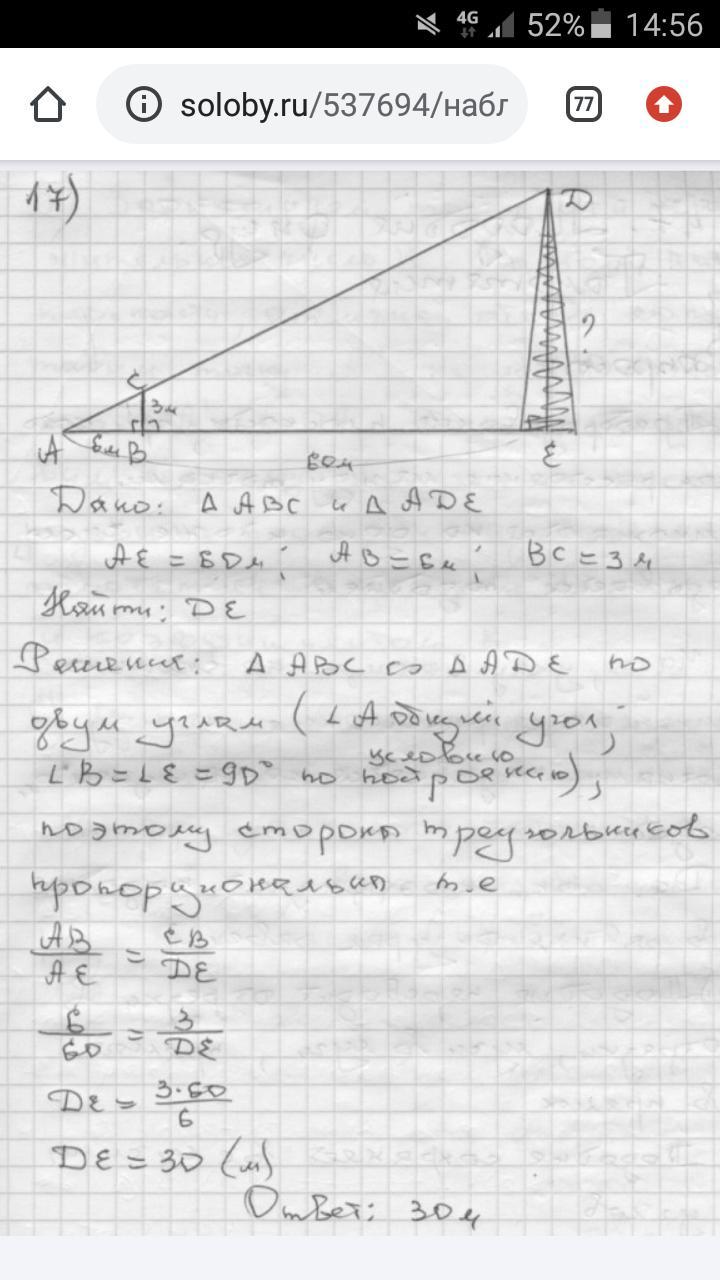 4G 52% 14:56
soloby.ru/537694/набл
77
17)
D
?
C
3м
A 6м B 60м E
Дано: Δ ABC и Δ ADE
AE = 60м; AB = 6м; BC = 3м
Найти: DE
Решение: Δ ABC ∽ Δ ADE по
двум углам (∠A общий угол;
∠B = ∠E = 90° по условию построению),
поэтому стороны треугольников
пропорциональны т.е
AB/AE = CB/DE
6/60 = 3/DE
DE = 3·60/6
DE = 30 (м)
Ответ: 30м